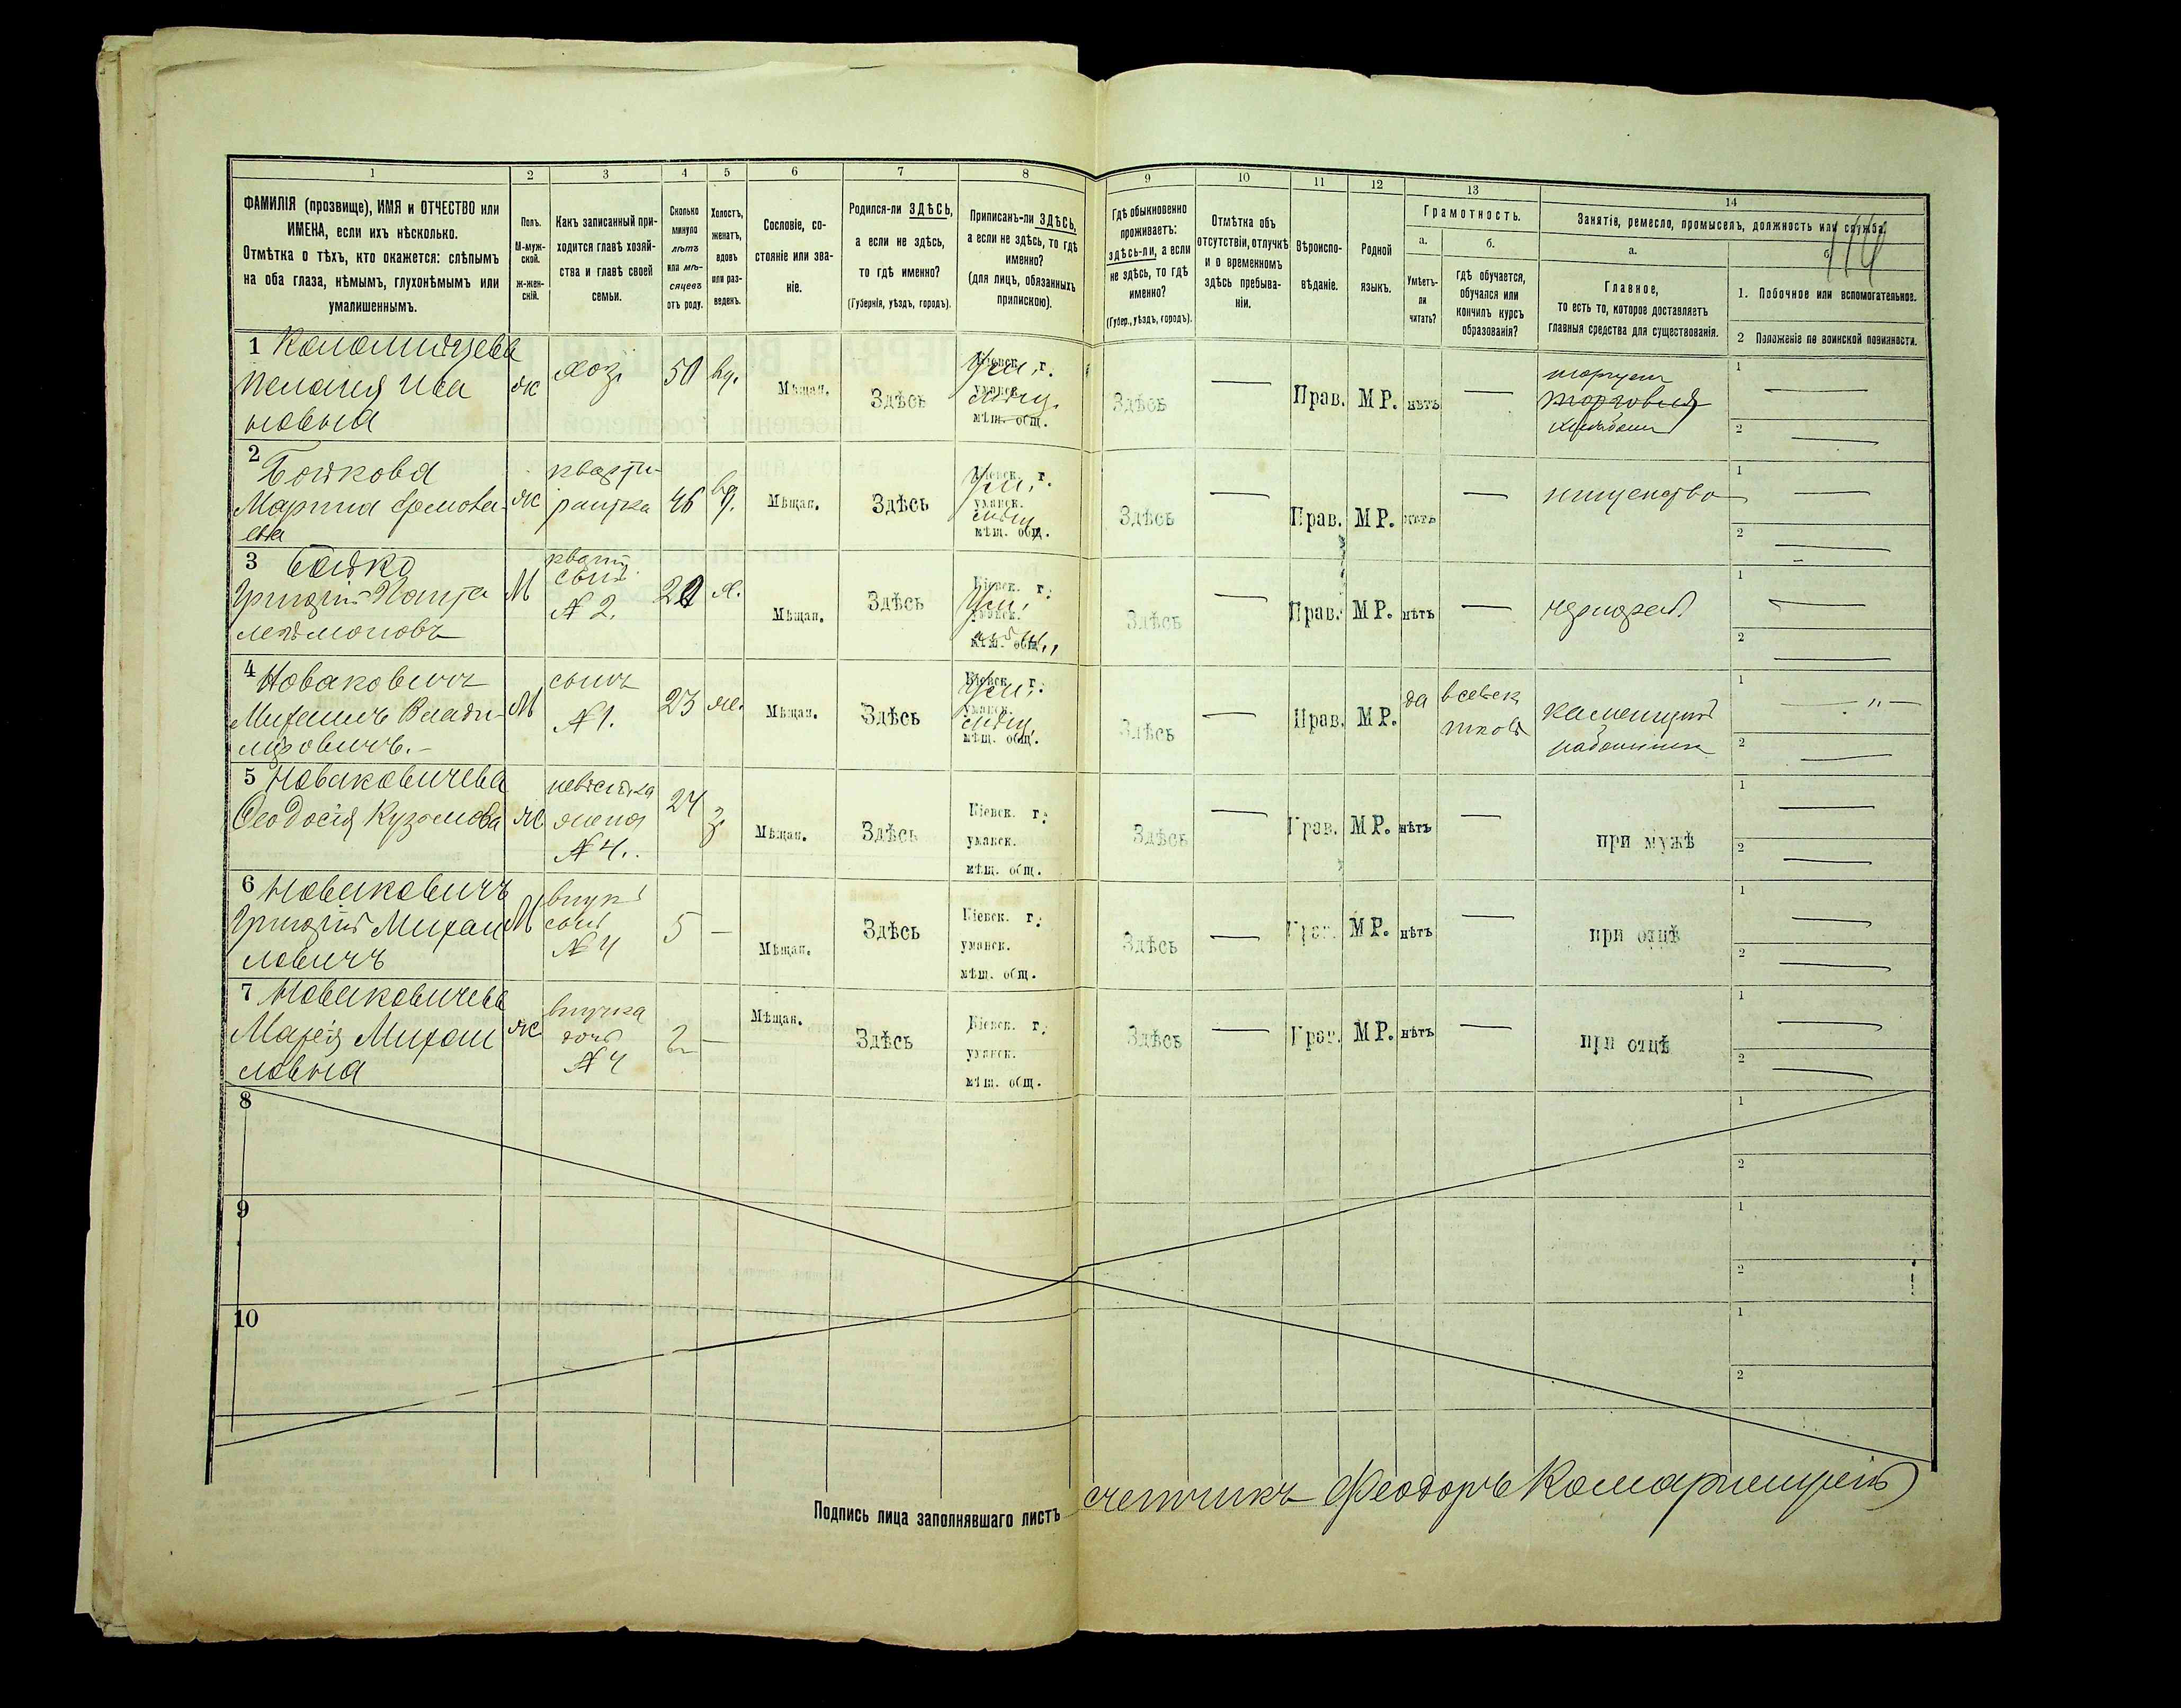 1 2 3 4 5 6 7 8 9 10 11 12 13 14
ФАМИЛІЯ (прозвище), ИМЯ и ОТЧЕСТВО или
ИМЕНА, если ихъ нѣсколько.
Отмѣтка о тѣхъ, кто окажется: слѣпымъ
на оба глаза, нѣмымъ, глухонѣмымъ или
умалишеннымъ.
Полъ.
М-муж-
ской.
ж-жен-
скій.
Какъ записанный при-
ходится главѣ хозяй-
ства и главѣ своей
семьи.
Сколько
минуло
лѣтъ
или мѣ-
сяцевъ
отъ роду.
Холостъ,
женатъ,
вдовъ
или раз-
веденъ.
Сословіе, со-
стояніе или зва-
ніе.
Родился-ли ЗДѢСЬ,
а если не здѣсь,
то гдѣ именно?
(Губернія, уѣздъ, городъ).
Приписанъ-ли ЗДѢСЬ,
а если не здѣсь, то гдѣ
именно?
(для лицъ, обязанныхъ
припискою).
Гдѣ обыкновенно
проживаетъ:
здѣсь-ли, а если
не здѣсь, то гдѣ
именно?
(Губер., уѣздъ, городъ).
Отмѣтка объ
отсутствіи, отлучкѣ
и о временномъ
здѣсь пребыва-
ніи.
Вѣроиспо-
вѣданіе.
Родной
языкъ.
Грамотность.
а.
Умѣетъ-
ли
читать?
б.
гдѣ обучается,
обучался или
кончилъ курсъ
образованія?
Занятіе, ремесло, промыселъ, должность или служба.
а.
Главное,
то есть то, которое доставляетъ
главныя средства для существованія.
б.
1. Побочное или вспомогательное.
2 Положеніе по воинской повинности.
1
Пелагія Ива
новна
ж
хоз.
50
вд.
Мѣщан.
Здѣсь
Кіевск. г.
уманск.
мѣщ. общ.
Здѣсь
—
Прав.
МР.
нѣтъ
—
торговля
1 —
2 —
2
Бойкова
Марина
ж
кварти-
рантка
46
вд.
Мѣщан.
Здѣсь
Кіевск. г.
уманск.
мѣщ. общ.
Здѣсь
—
Прав.
МР.
нѣтъ
—
нищенство
1 —
2 —
3 Бойко
Григорій Панте
леймоновъ
М
кварт
сынъ
№ 2.
х.
Мѣщан.
Здѣсь
Кіевск. г.
уманск.
мѣщ. общ.
Здѣсь
—
Прав.
МР.
нѣтъ
—
1 —
2 —
4 Новаковичъ
Михаилъ Влади-
міровичъ.-
М
сынъ
№ 1.
23
же.
Мѣщан.
Здѣсь
Кіевск. г.
уманск.
мѣщ. общ.
Здѣсь
—
Прав.
МР.
да
1 — " —
2 —
5 Новаковичева
Феодосія Кузьмова
ж
невѣстка
жена
№ 4.
24
з.
Мѣщан.
Здѣсь
Кіевск. г.
уманск.
мѣщ. общ.
Здѣсь
—
Прав.
МР.
нѣтъ
—
при мужѣ
1 —
2 —
6 Новаковичъ
Григорій Михаи
ловичъ
М
внукъ
сынъ
№ 4
5
—
Мѣщан.
Здѣсь
Кіевск. г.
уманск.
мѣщ. общ.
Здѣсь
—
Прав.
МР.
нѣтъ
—
при отцѣ
1 —
2 —
7 Новаковичева
Марія Михаи
ловна
ж
внучка
дочь
№ 4
2
—
Мѣщан.
Здѣсь
Кіевск. г.
уманск.
мѣщ. общ.
Здѣсь
—
Прав.
МР.
нѣтъ
—
при отцѣ
1 —
2 —
8
1
2
9
1
2
10
1
2
Подпись лица заполнявшаго листъ счетчикъ Феодоръ